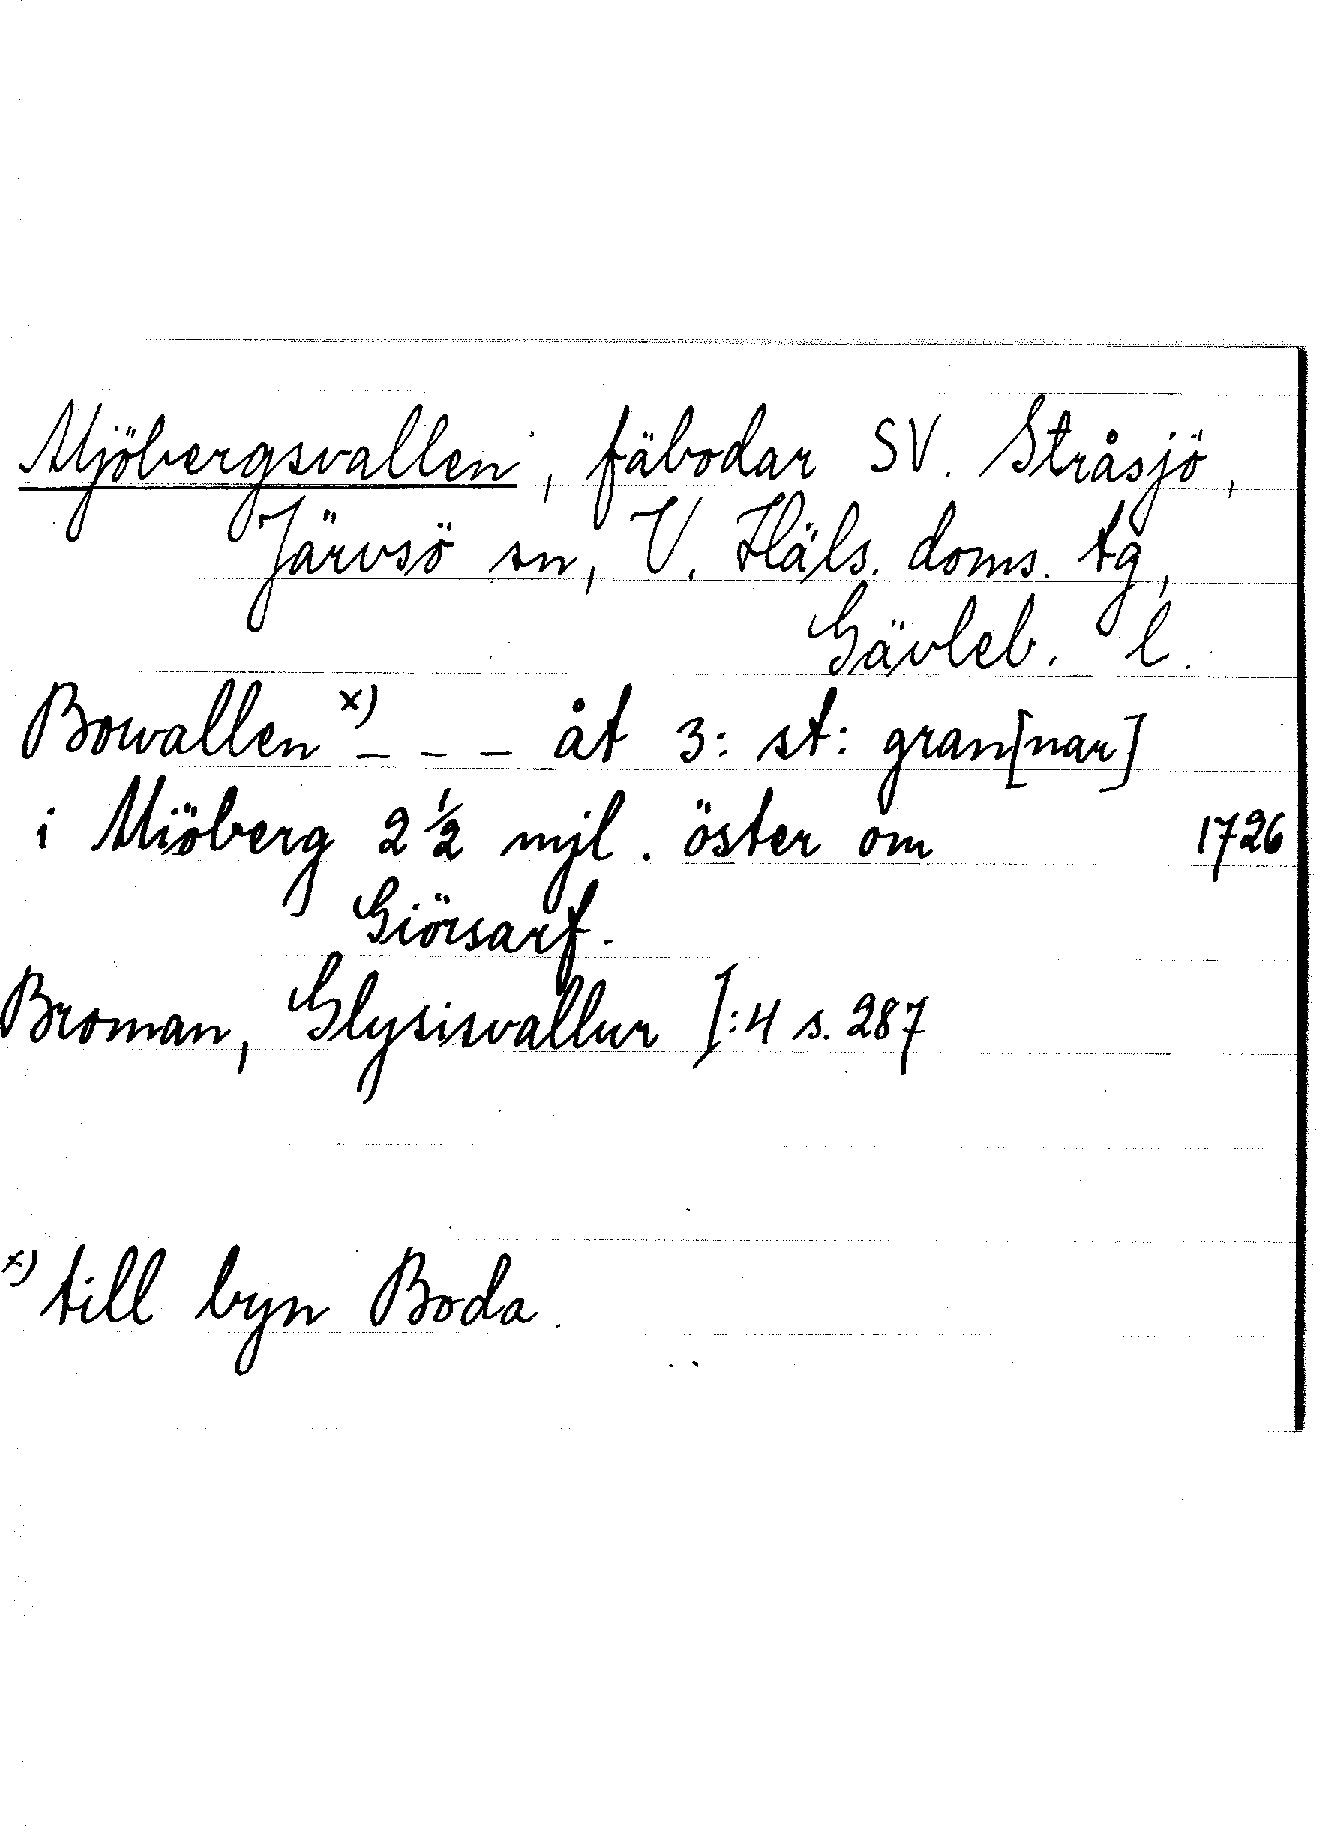 Mjöbergsvallen, fäbodar SV. Stråsjö,
Järvsö sn, V. Häls. doms. tg,
Gävleb. l.
Bowallen x) _ _ _ åt 3: st: gran[nar]
i Miöberg 2 ½ mjl. öster om 1726
Giörsarf.
Broman, Glysisvallur I:4 s. 287
x) till byn Boda.